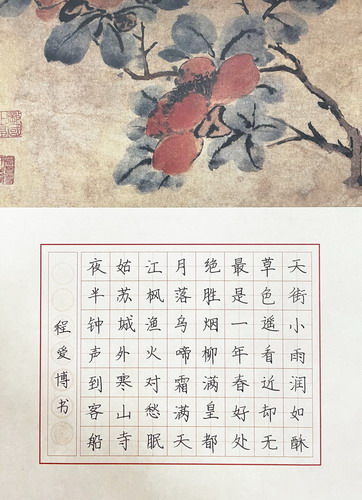 天街小雨润如酥
草色遥看近却无
最是一年春好处
绝胜烟柳满皇都
月落乌啼霜满天
江枫渔火对愁眠
姑苏城外寒山寺
夜半钟声到客船
程爱博书